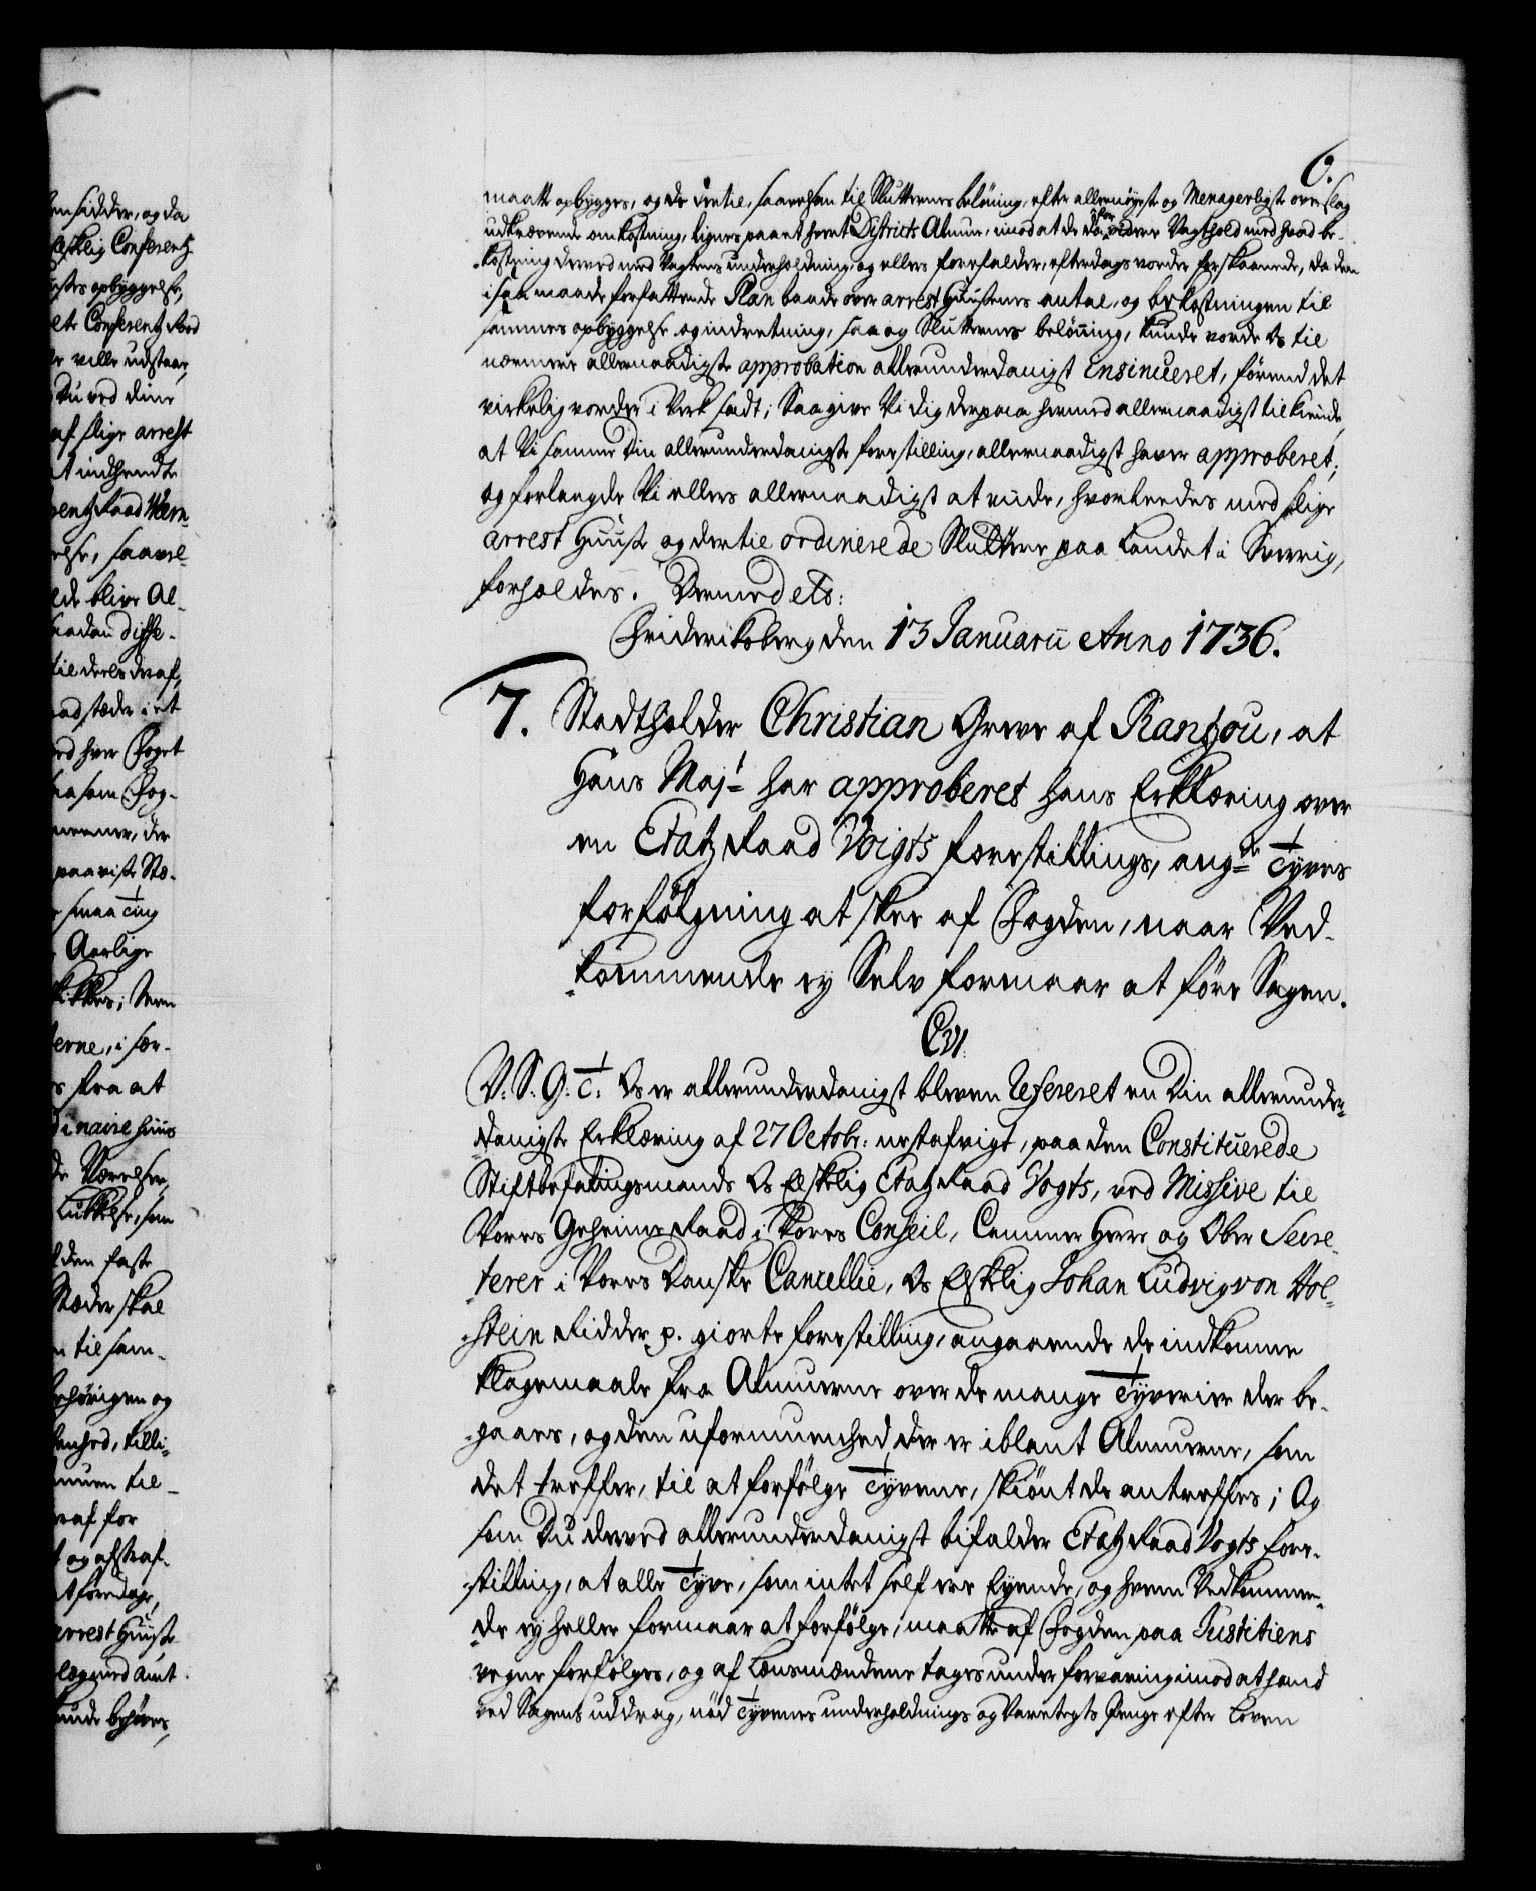 6.
maatte opbygges, og de dertil, saavelsom til Slutternes belöning, efter allernöyeste og Menagerligste overslag
udkrævende omkostning, lignes paa et hvert Districts Almue, imod at de da for videre Vagthold med hvad be-
kostning derved med Vagtens underholdning, og ellers forefalder, efterdags vorder forskaanede, da den
i saa maade forfattende Plan baade over arrest Huusenes antal, og bekostningen til
sammes opbyggelse og indretning, saa og Slutternes belönning, kunde vorde Os til
nærmere allernaadigste approbation allerunderdanigst insinueret, förend det
virkelig vorder i Verk sadt; Saa give Vi dig derpaa hermed allernaadigst tilkiende,
at Vi samme Din allerunderdanigste forestilling, allernaadigst haver approberet;
og forlangede Vi ellers allernaadigst at viide, hvorledes med slige
arrest Huuse og dertil ordinerede Sluttere paa Landet i Sverrig,
forholdes. Dermed etc:
Friderichsberg den 13 Januarii Anno 1736.
7. Stadtholder Christian Greve af Rantzou, at
Hans Majt har approberet hans Erklæring over
en Etatz Raad Voigts forestillings, angde Tyves
forfölgning at skee af Fogden, naar Ved-
kommende ey Selv formaar at före Sagen.
C VI.
V. S. G. T: Os er allerunderdanigst bleven refereret en Din allerunder-
danigste Erklæring af 27 Octobr: nestafvigt, paa den Constituerede
Stiftbefalingsmands Os Elskelig Etatz Raad Vogts, ved Missive til
Vores Geheime Raad i Vores Conseil, Cammer Herre og Ober Secre-
terer i Vores Danske Cancellie, Os Elskelig Johan Ludvig von Hol-
stein Ridder p. giorte forestilling, angaaende de indkomne
klagemaale fra Almuerne over de mange Tyverier der be-
gaaes, og den uformuenhed, der er iblant Almuerne, som
det treffer, til at forfölge Tyvene, skiönt de antreffes; Og
som Du derved allerunderdanigst bifalder Etatz Raad Vogts fore-
stilling, at alle Tyve, som intet self ere Eyende, og hvem Vedkommen-
de ey heller formaar at forfölge, maatte af Fogden paa Justitiens
vegne forfölges, og af Lænsmændene tages under forvaring imod at hand
ved Sagens uddrag, nöd Tyvenes underholdnings og Varetegts Penge efter Loven